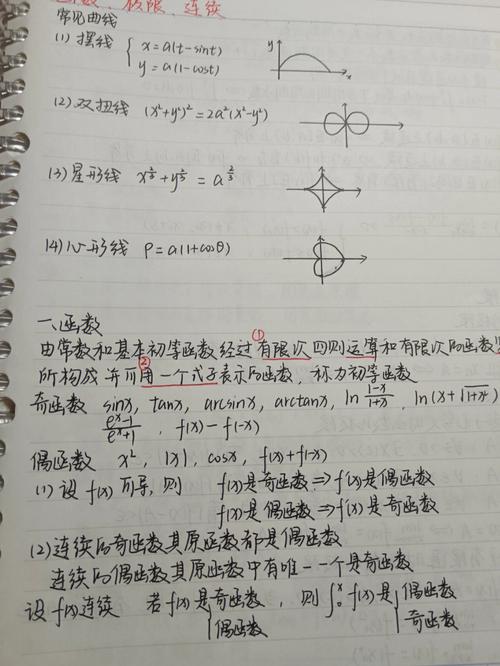 函数、极限、连续
常见曲线
(1) 摆线 { x=a(t-sint)
y=a(1-cost)
y
x
(2) 双扭线 (x²+y²)²=2a²(x²-y²)
(3) 星形线 x^{2/3}+y^{2/3}=a^{2/3}
(4) 心形线 ρ=a(1+cosθ)
一.函数
由常数和基本初等函数经过①有限次四则运算和有限次的函数
所构成并可②用一个式子表示的函数,称为初等函数
奇函数 sinx, tanx, arcsinx, arctanx, ln (1-x)/(1+x), ln(x+√(1+x²))
(e^x-1)/(e^x+1), f(x)-f(-x)
偶函数 x², |x|, cosx, f(x)+f(-x)
(1) 设 f(x) 可导, 则 f(x)是奇函数 ⇒ f'(x)是偶函数
f(x)是偶函数 ⇒ f'(x)是奇函数
(2)连续的奇函数其原函数都是偶函数
连续的偶函数其原函数中有唯一一个是奇函数
设 f(x)连续 若 f(x)是{奇函数, 则 ∫₀ˣ f(x)是{偶函数
偶函数 奇函数